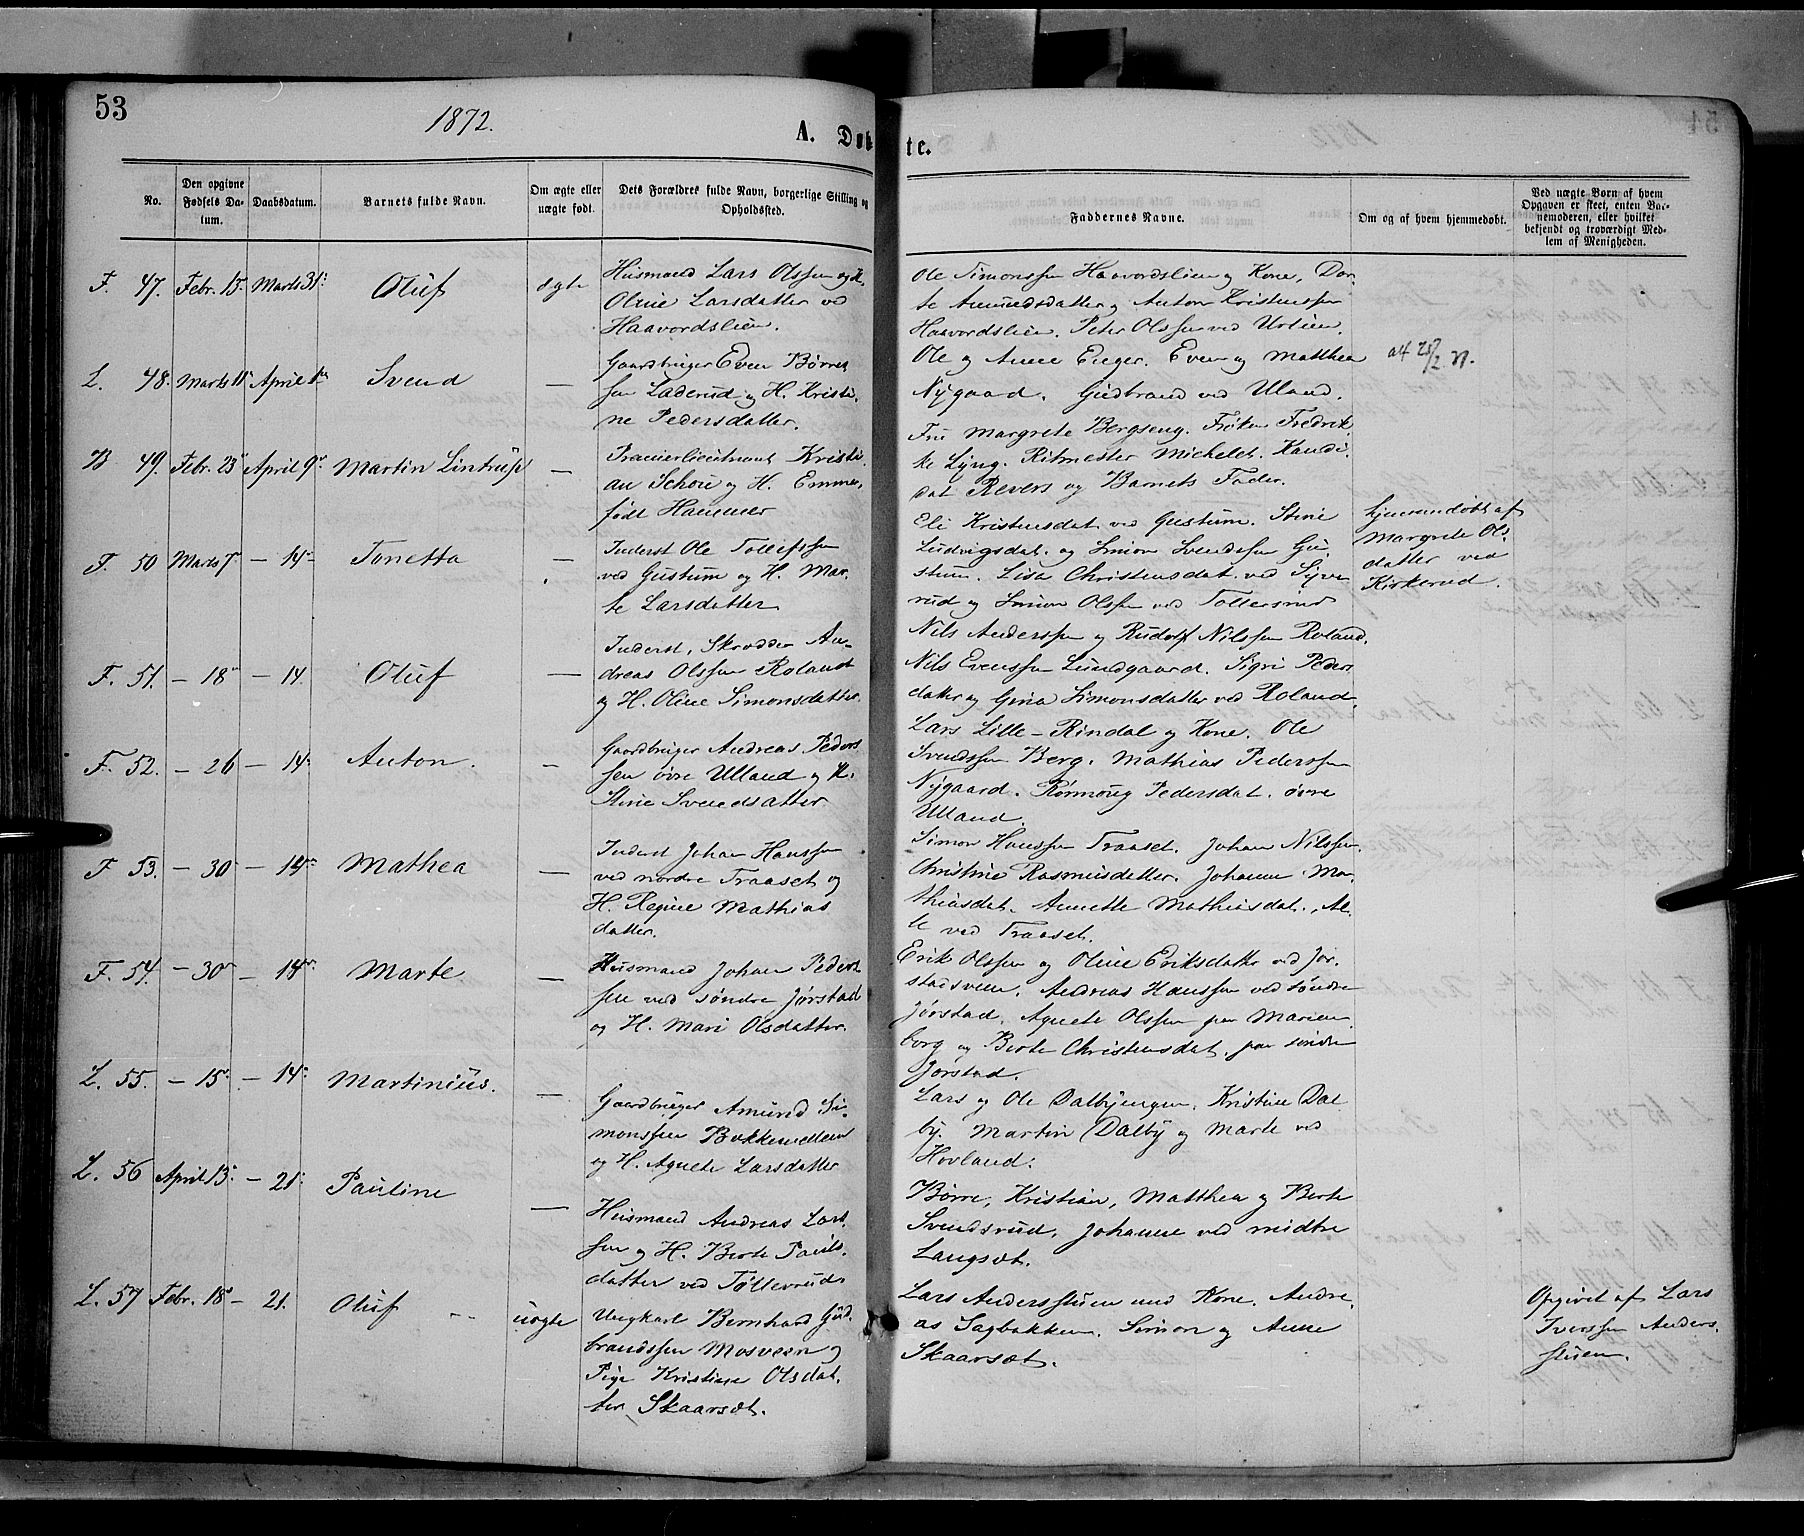 53
1872.
A. Døbte.
No.
Den opgivne Fødsels Datum.
Daabsdatum.
Barnets fulde Navn.
Om ægte eller uægte født.
Dets Forældres fulde Navn, borgerlige Stilling og Opholdssted.
Faddernes Navne.
Om og af hvem hjemmedøbt.
Ved uægte Børn af hvem Opgaven er skeet, enten Barnemoderen, eller hvilket bekjendt og troværdigt Medlem af Menigheden.
F. 47. Febr. 15. Marts 31. Oluf ægte
Husmand Lars Olssen og H.
Oline Larsdatter ved
Haavordslien.
Ole Simonssen Haavordslien og Kone, Dor-
te Amundsdatter og Anton Kristenssen
Haavordslien. Peter Olssen ved
L. 48. Marts April 1 Svend —
Gaardbruger Even Børre
sen Laderud og H. Kristi-
ne Pedersdatter.
Ole og Anne Enger. Even og Matthea
Nygaard. Gudbrand ved Uland.
B 49. Febr. 23 April 9 Martin Lintrup —
Premierlieutnant Kristi-
an Schou og H. Emma,
født Hammer
Fru Margrete Bergseng. Frøken Fredrik-
ke Lyng. Ritmester Michelet. Kandi-
dat Revers og Barnets Fader.
F. 50 Marts 7 — 14 — Tonetta —
Inderst Ole Tollefssen
ved Gustum og H. Mar-
te Larsdatter
Eli Kristensdat. ved Gustum. Stine
Ludvigsdat. og Simon Svendssen Gu-
stum. Lisa Christensdat. ved Syve-
rud og Simon Olssen ved Tollersrud
hjemmedøbt af
Margrete Ols-
datter ved
Kirkerud.
F. 51. — 18 — 14. Oluf —
Inderst, Skrædder An-
dreas Olssen Roland
og H. Oline Simonsdatter.
Nils Anderssen og Rudolf Nilssen Roland.
Nils Evenssen Lundgaard. Sigri Peders
datter og Gina Simonsdatter ved Roland.
F. 52. — 26 — 14. Anton. —
Gaardbruger Andreas Peders
sen øvre Ulland og H.
Stine Svendsatter
Lars Lille-Rindal og Kone. Ole
Svendssen Berg. Mathias Pederssen
Nygaard. Rønnoug Pedersdat. øvre
Ulland.
F 53. — 30 — 14 Mathea —
Inderst Johan Hanssen
ved nordre Traaset og
H. Regine Mathias
datter.
Simon Hanssen Traaset. Johan Nilssen.
Christine Rasmusdatter. Johanne Ma-
thiasdat. Annette Mathiasdat., Al-
le ved Traaset.
F. 54. — 30 — 14 Marte —
Husmand Johan Peders
sen ved søndre Jørstad
og H. Mari Olsdatter.
Erik Olssen og Oline Eriksdatter ved Jør-
stadsveen. Andreas Hanssen ved søndre
Jørstad. Agnete Olssen paa Marien-
borg og Berte Christensdat. paa søndre
Jørstad.
L. 55. — 15 — 14 Martinius. —
Gaardbruger Amund Si-
monssen Bakkemellem
og H. Agnete Larsdatter
Lars og Ole Dalbyengen. Kristine Dal
by. Martin Dalby og Marte ved
Hovland.
L. 56 April 13. — 21. Pauline —
Husmand Andreas Lars-
sen og H. Berte Pauls-
datter ved Tøllevrud
Børre, Kristian, Matthea og Berte
Svendsrud, Johanne ved midtre
Langsæt.
L. 57 Febr. 18 — 21. Oluf uægte
Ungkarl Bernhard Gud-
brandssen Mosveen og
Pige Kristine Olsdat-
ter Skaarsæt.
Lars Andersstuen med Kone. Andre-
as Sagbakken. Simon og Anne
Skaarsæt.
Opgivet af Lars
Iverssen Anders-
stuen.